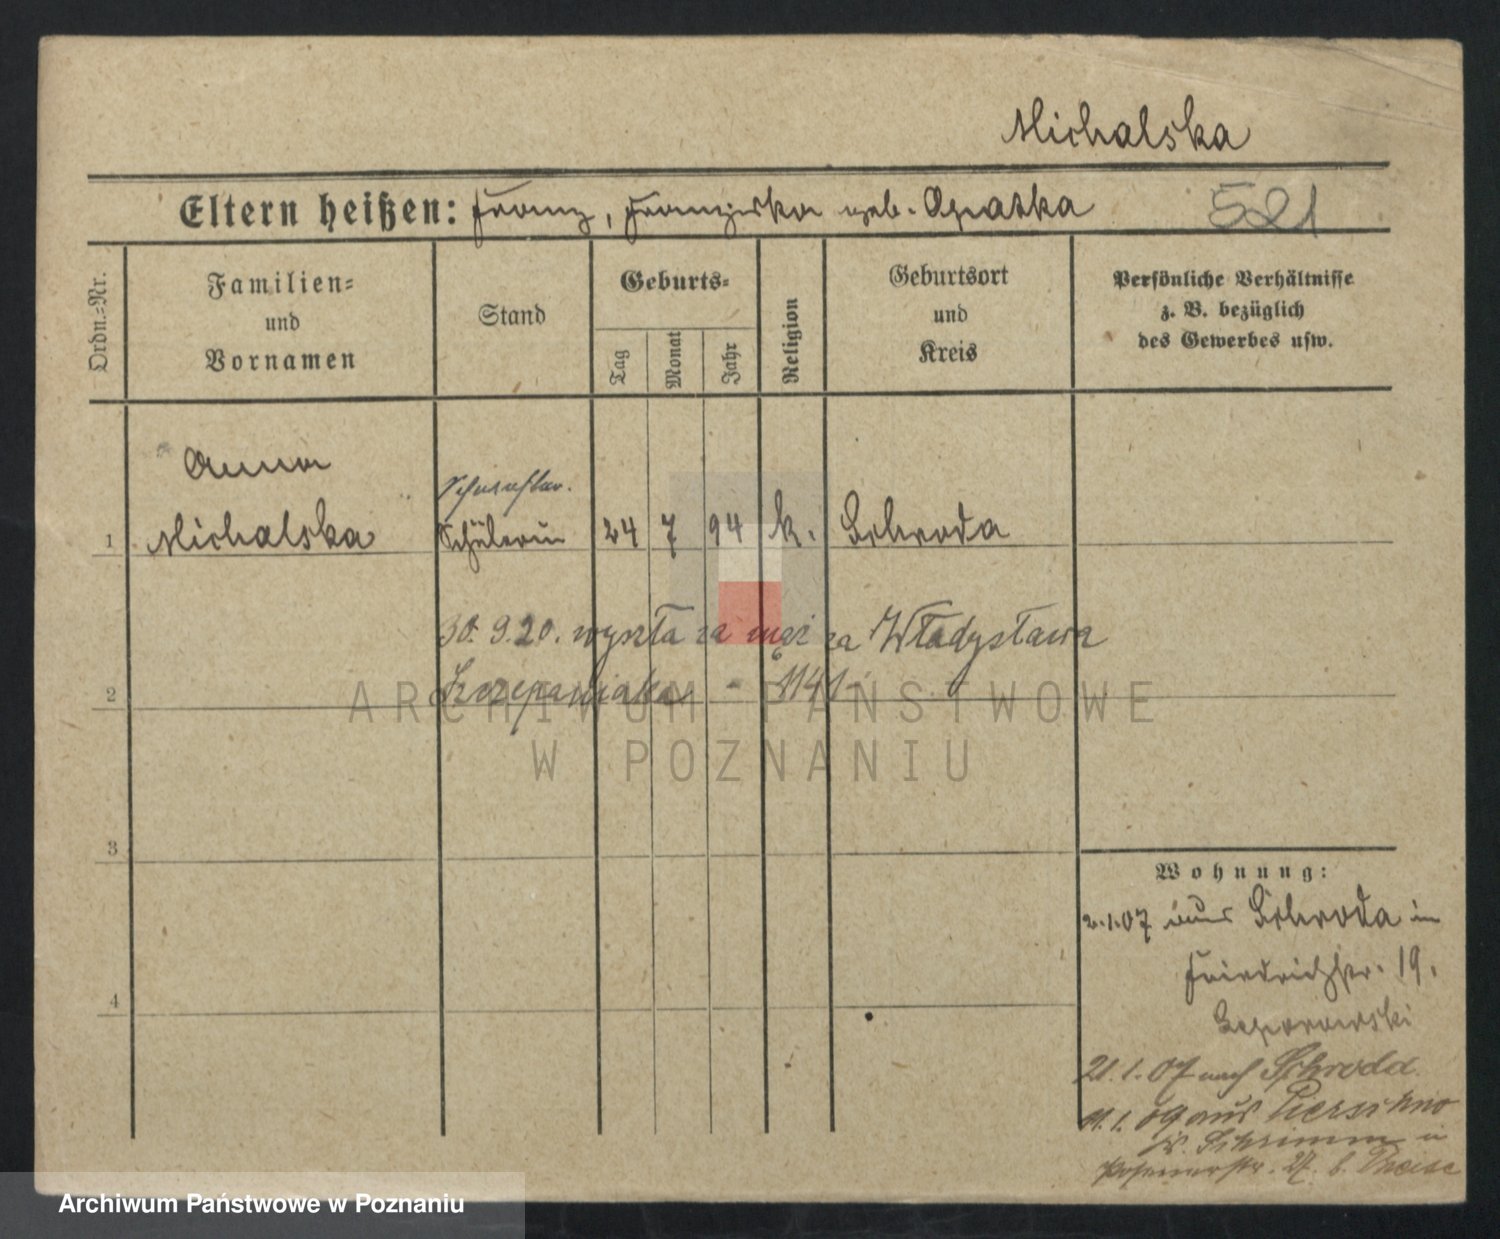 Michalska
Eltern heißen: Franz, Franziska geb. Opaska
521
Ordn.-Nr.
Familien-
und
Vornamen
Stand
Geburts-
Tag
Monat
Jahr
Religion
Geburtsort
und
Kreis
Persönliche Verhältnisse
z. B. bezüglich
des Gewerbes usw.
Anna
1 Michalska Schülerin 24 7 94 k. Schroda
30. 9. 20. wyszła za mąż za Władysława
2 Szczepaniaka - 1141
ARCHIWUM PAŃSTWOWE
W POZNANIU
3
Wohnung:
2.1.07 aus Schroda in
Friedrichstr. 19.
4
21.1.07 nach Schroda
11.1.09 aus
Kr. Schrimm in
Posenerstr. 27. b.
Archiwum Państwowe w Poznaniu